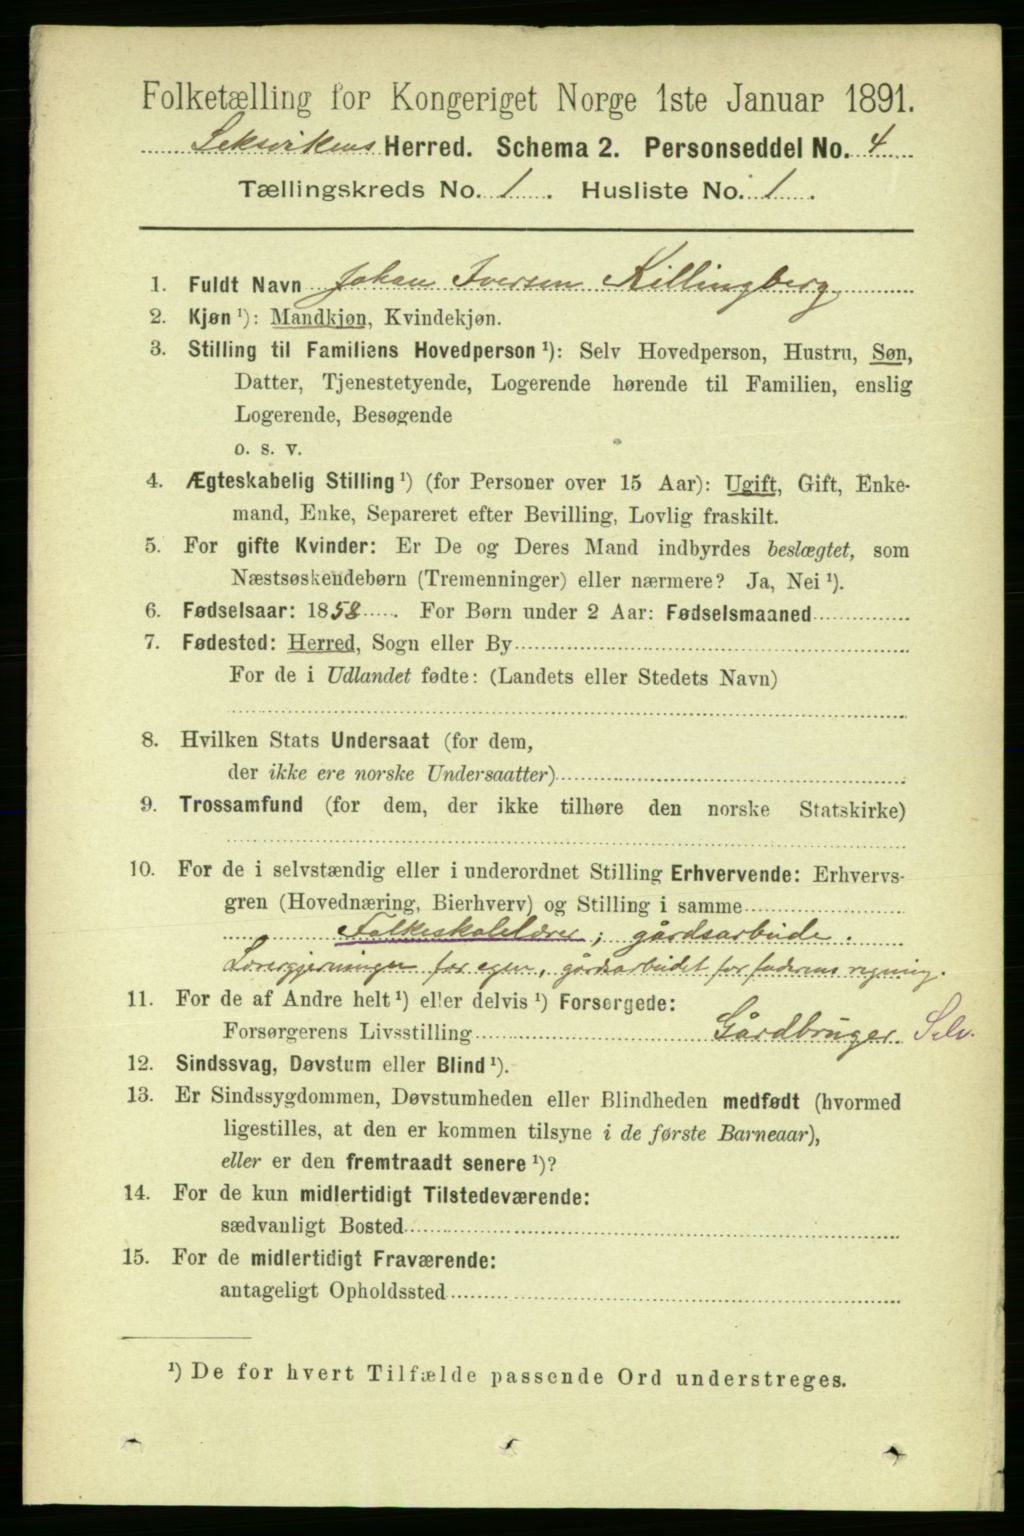 Folketælling for Kongeriget Norge 1ste Januar 1891.
Leksvikens Herred. Schema 2. Personseddel No. 4
Tællingskreds No. 1. Husliste No. 1.
1. Fuldt Navn Johan Iversen Killingberg
2. Kjøn ¹): Mandkjøn, Kvindekjøn.
3. Stilling til Familiens Hovedperson ¹): Selv Hovedperson, Hustru, Søn,
Datter, Tjenestetyende, Logerende hørende til Familien, enslig
Logerende, Besøgende
o. s. v.
4. Ægteskabelig Stilling ¹) (for Personer over 15 Aar): Ugift, Gift, Enke-
mand, Enke, Separeret efter Bevilling, Lovlig fraskilt.
5. For gifte Kvinder: Er De og Deres Mand indbyrdes beslægtet, som
Næstsøskendebørn (Tremenninger) eller nærmere? Ja, Nei ¹).
6. Fødselsaar: 1858. For Børn under 2 Aar: Fødselsmaaned
7. Fødested: Herred, Sogn eller By
For de i Udlandet fødte: (Landets eller Stedets Navn)
8. Hvilken Stats Undersaat (for dem,
der ikke ere norske Undersaatter)
9. Trossamfund (for dem, der ikke tilhøre den norske Statskirke)
10. For de i selvstændig eller i underordnet Stilling Erhvervende: Erhvervs-
gren (Hovednæring, Bierhverv) og Stilling i samme
Folkeskolelærer; gårdsarbeide.
Lærergjerningen for egen, gårdsarbeidet for faderens regning.
11. For de af Andre helt ¹) eller delvis ¹) Forsørgede:
Forsørgerens Livsstilling Gårdbruger Selv.
12. Sindssvag, Døvstum eller Blind ¹).
13. Er Sindssygdommen, Døvstumheden eller Blindheden medfødt (hvormed
ligestilles, at den er kommen tilsyne i de første Barneaar),
eller er den fremtraadt senere ¹)?
14. For de kun midlertidigt Tilstedeværende:
sædvanligt Bosted
15. For de midlertidigt Fraværende:
antageligt Opholdssted
¹) De for hvert Tilfælde passende Ord understreges.